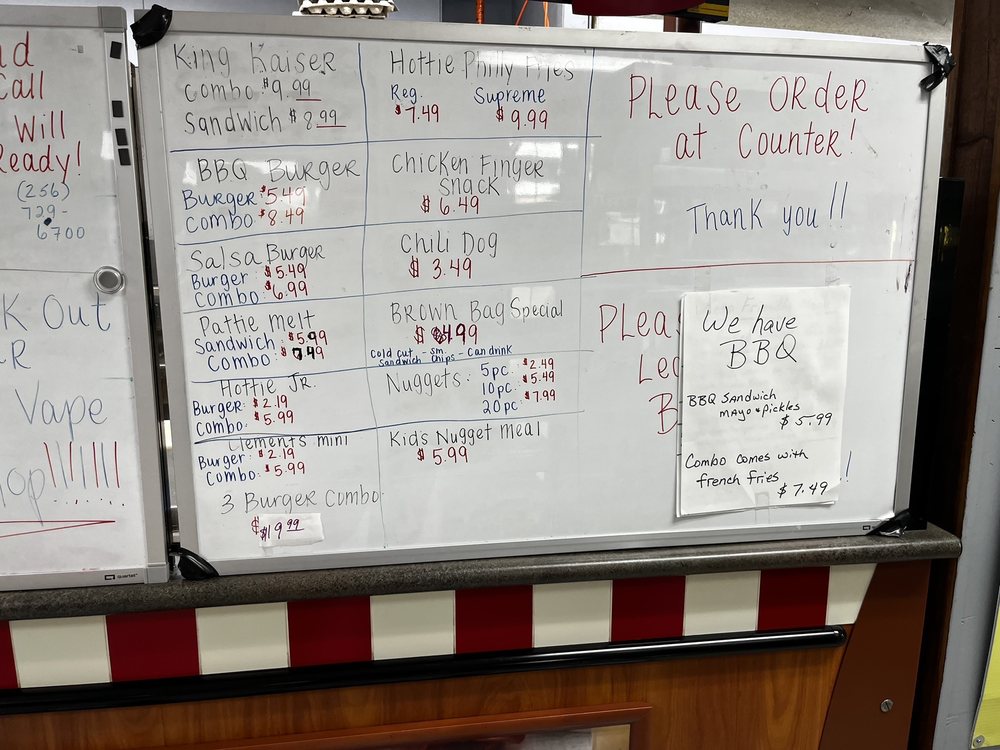 Call
Will
Ready!
(256)
729-
6700
Out
Vape
King Kaiser
Combo $9.99
Sandwich $8.99
BBQ Burger
Burger: $5.49
Combo: $8.49
Salsa Burger
Burger: $5.49
Combo: $6.99
Pattie Melt
Sandwich: $5.99
Combo: $7.49
Hottie Jr.
Burger: $2.19
Combo: $5.99
Clements mini
Burger: $2.19
Combo: $5.99
3 Burger Combo
$19.99
Hottie Philly Fries
Reg. Supreme
$7.49 $9.99
Chicken Finger
Snack
$6.49
Chili Dog
$3.49
Brown Bag Special
$4.99
Cold cut - sm. - Can drink
Sandwich chips
Nuggets: 5pc. $2.49
10pc. $5.49
20pc. $7.99
Kid's Nugget Meal
$5.99
Please Order
at Counter!
Thank you!!
We have
BBQ
BBQ Sandwich
Mayo + Pickles
$5.99
Combo comes with
french fries
$7.49
Quartet